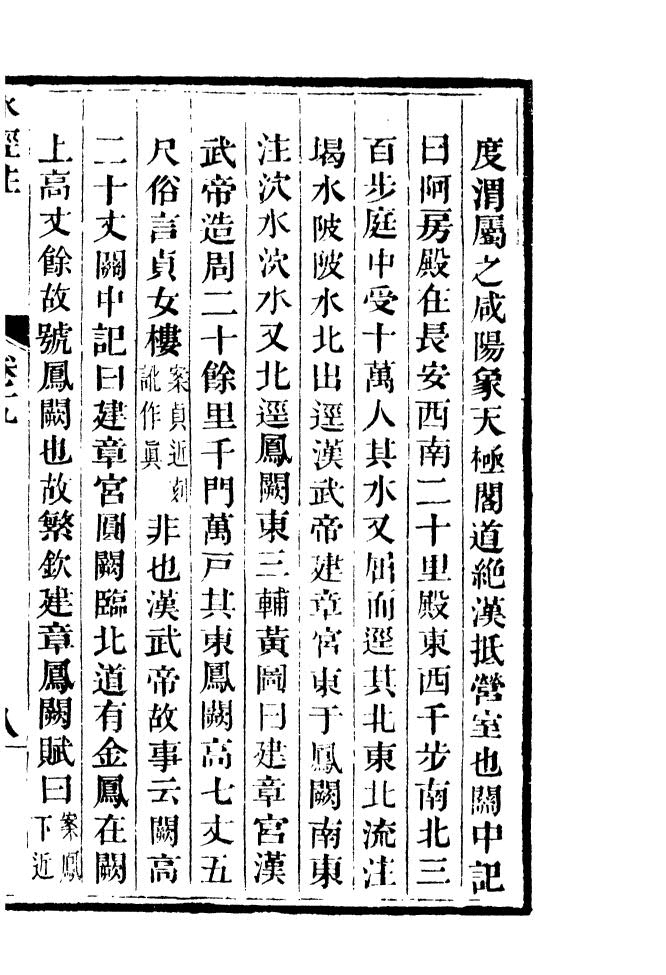 度渭屬之咸陽象天極閣道絶漢抵營室也關中記
曰阿房殿在長安西南二十里殿東西千步南北三
百步庭中受十萬人其水又屈而逕其北東北流注
堨水陂陂水北出逕漢武帝建章宮東于鳳闕南東
注泬水泬水又北逕鳳闕東三輔黃圖曰建章宮漢
武帝造周二十餘里千門萬戸其東鳳闕高七丈五
尺俗言貞女樓案貞近刻訛作眞非也漢武帝故事云闕高
二十丈關中記曰建章宮圓闕臨北道有金鳳在闕
上高丈餘故號鳳闕也故繁欽建章鳳闕賦曰案鳳下近
水經注 卷十九 八